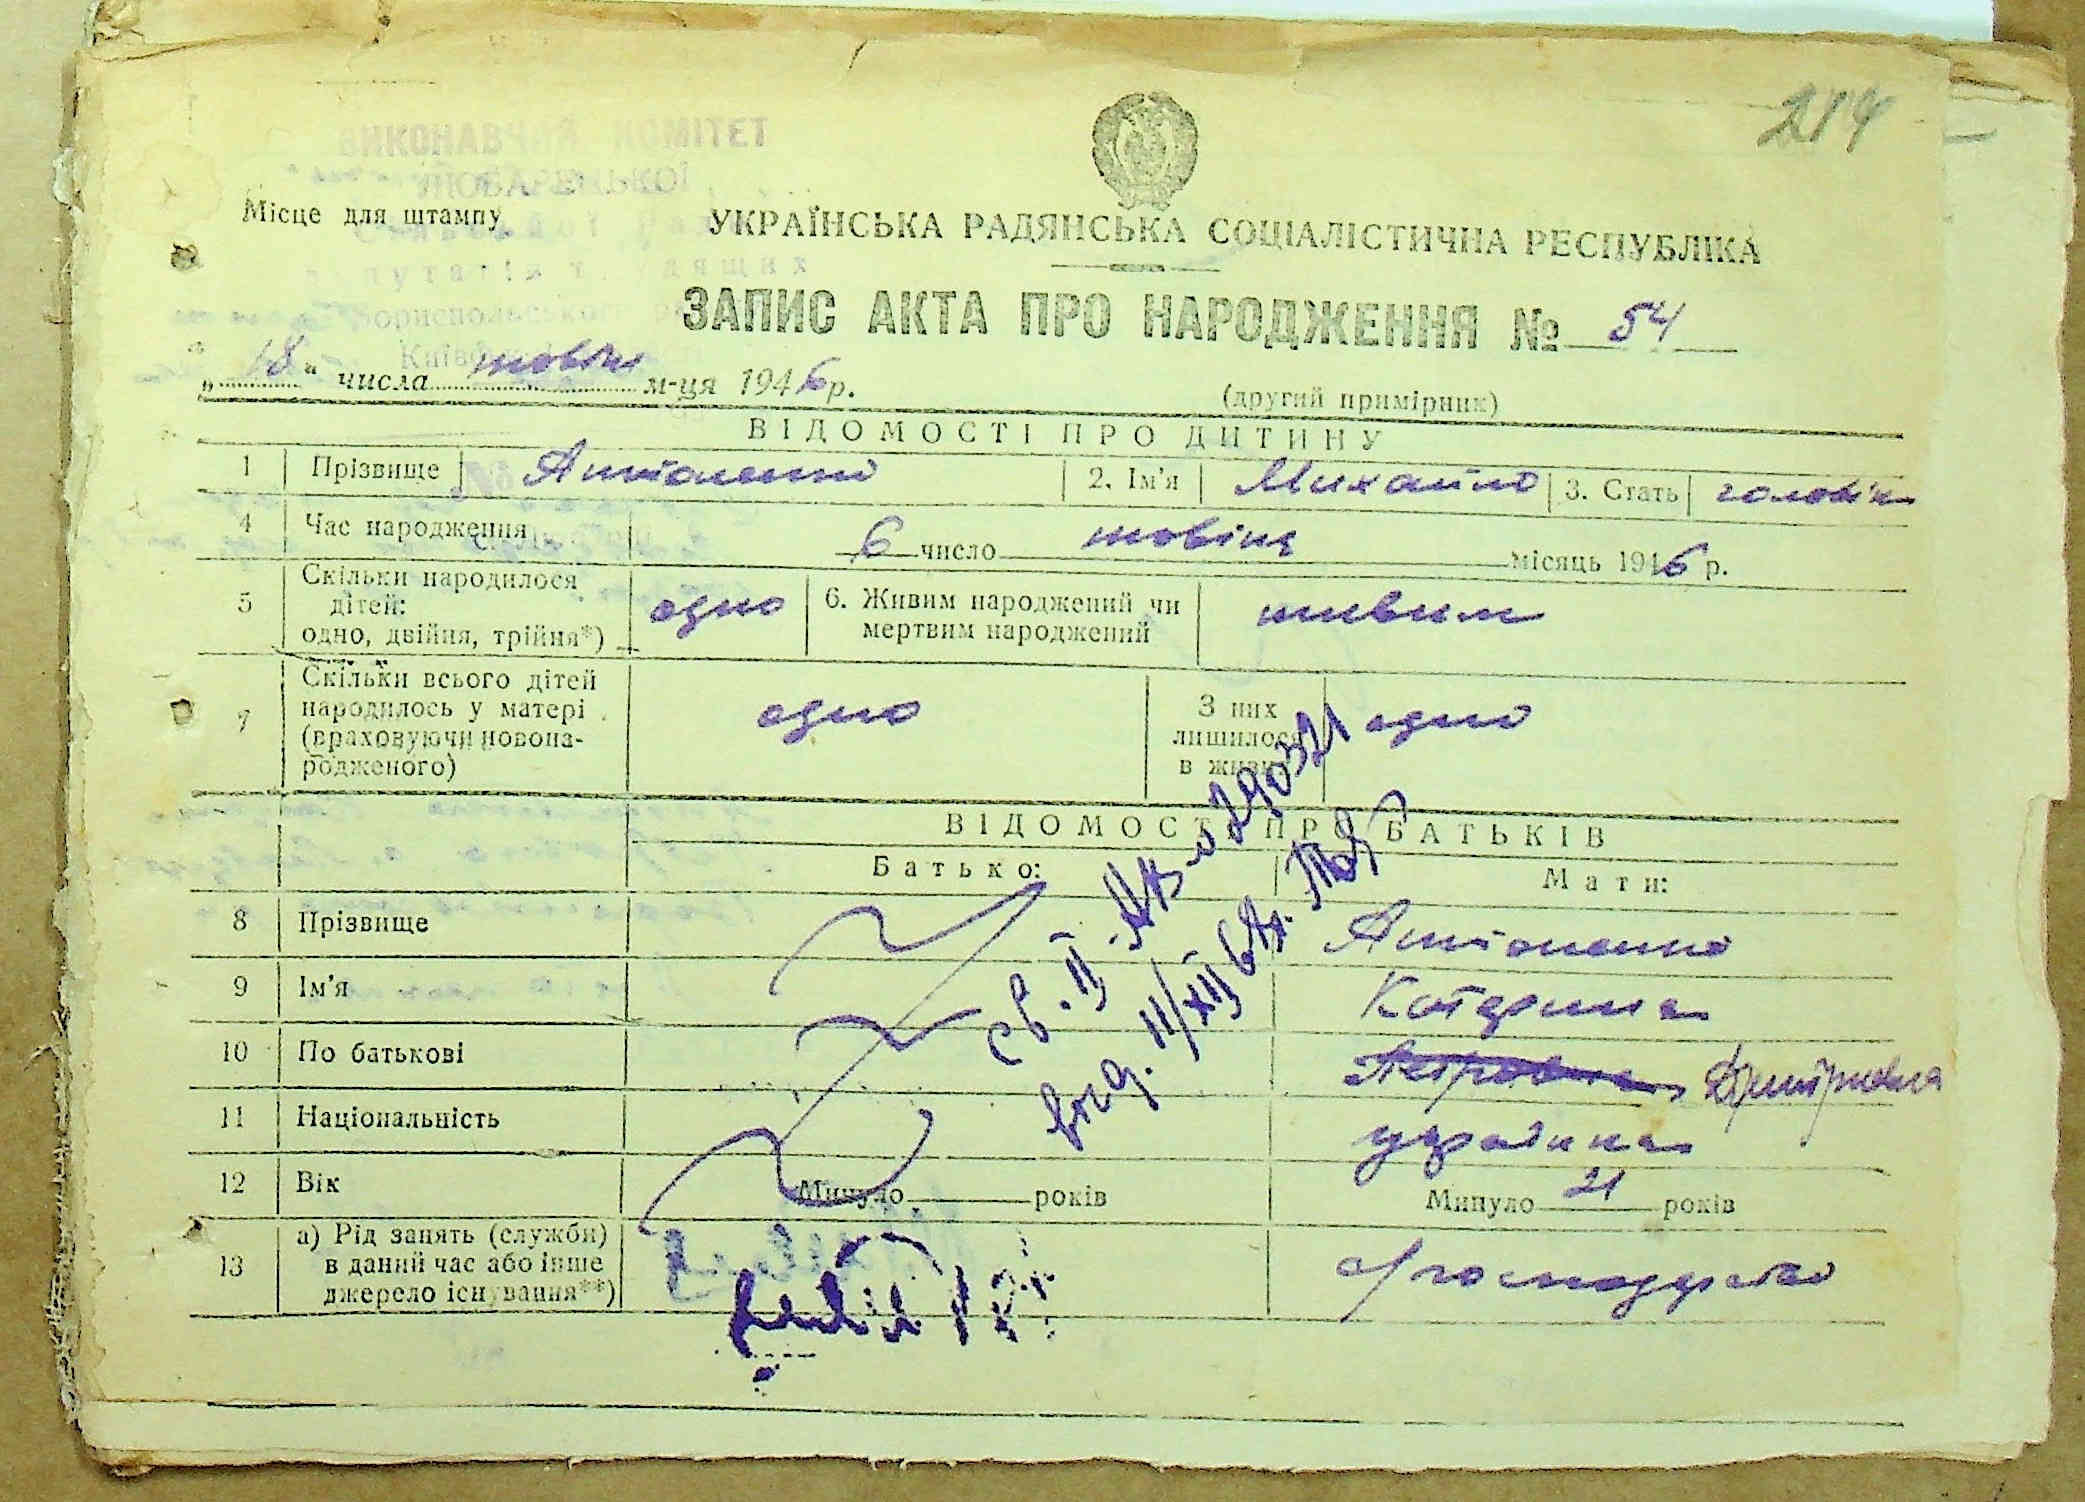 214
ВИКОНАВЧИЙ КОМІТЕТ
Місце для штампу
УКРАЇНСЬКА РАДЯНСЬКА СОЦІАЛІСТИЧНА РЕСПУБЛІКА
ЗАПИС АКТА ПРО НАРОДЖЕННЯ № 54
„18“ числа жовтня м-ця 1946 р.
(другий примірник)
ВІДОМОСТІ ПРО ДИТИНУ
1 Прізвище Антоненко 2. Ім'я Михайло 3. Стать чоловік
4 Час народження 6 число жовтня місяць 1946 р.
5 Скільки народилося дітей: одно, двійня, трійня*) одно 6. Живим народжений чи мертвим народжений живим
7 Скільки всього дітей народилось у матері (враховуючи новонародженого) одно З них лишилося в живих одно
ВІДОМОСТІ ПРО БАТЬКІВ
Батько: Мати:
8 Прізвище Антоненко
9 Ім'я Катерина
10 По батькові Петровна Дмитровна
11 Національність українка
12 Вік Минуло років Минуло 21 років
13 а) Рід занять (служби) в даний час або інше джерело існування**) с/господарство